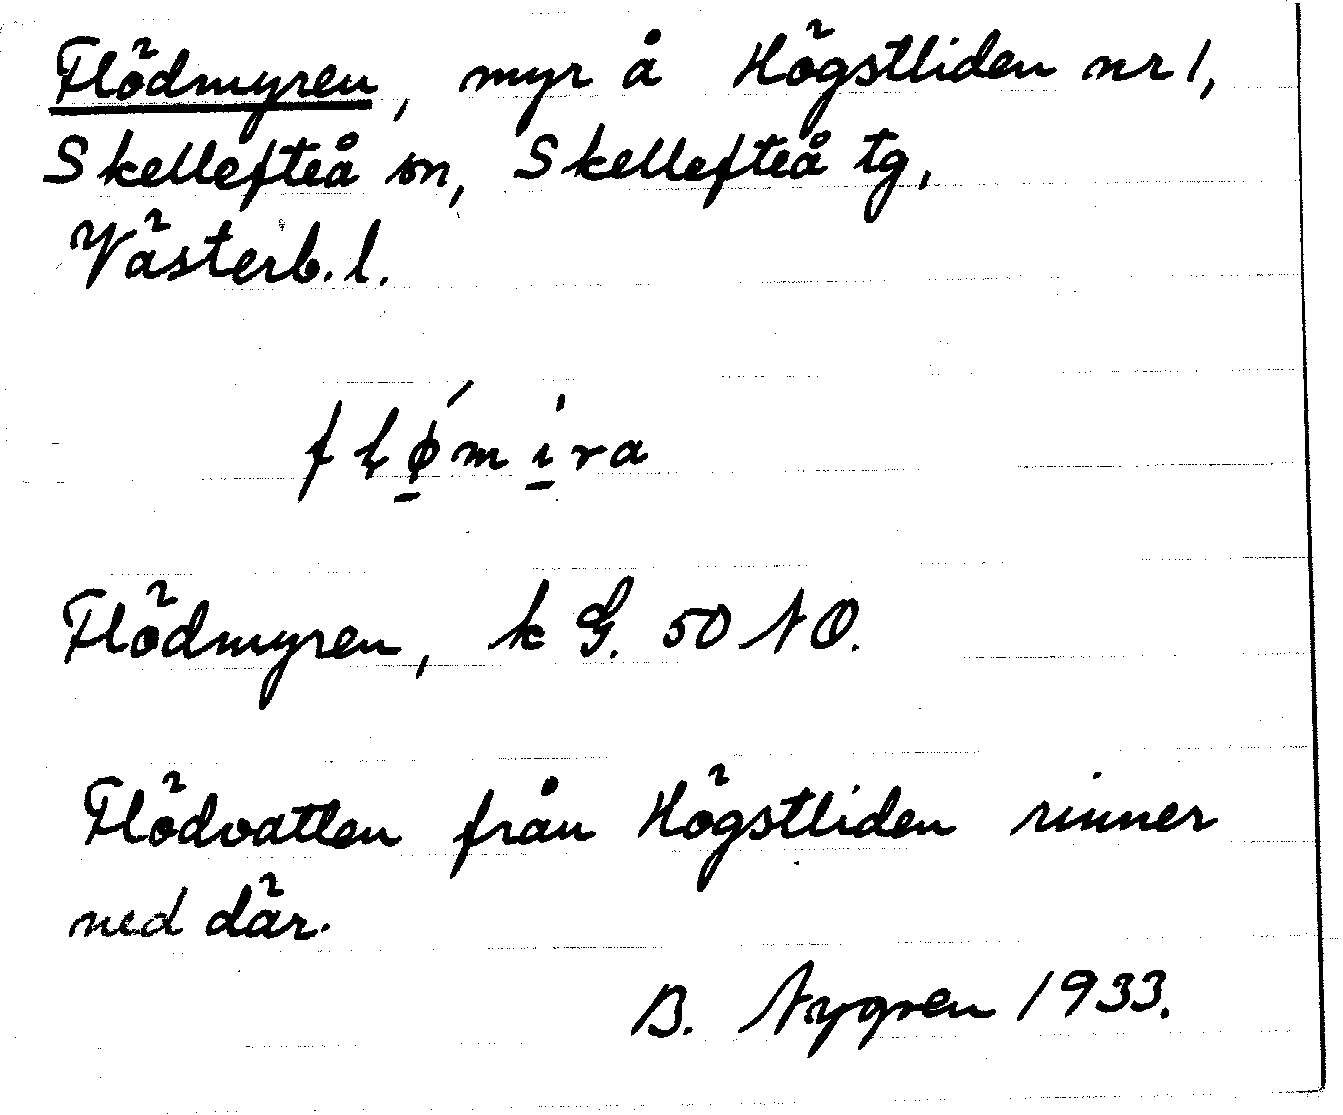 Flödmyren, myr å Högstliden nr 1,
Skellefteå sn, Skellefteå tg,
Västerb. l.
fłǿ̲mı̲̍ra
Flödmyren, k G. 50 NO.
Flödvatten från Högstliden rinner
ned där.
B. Nygren 1933.